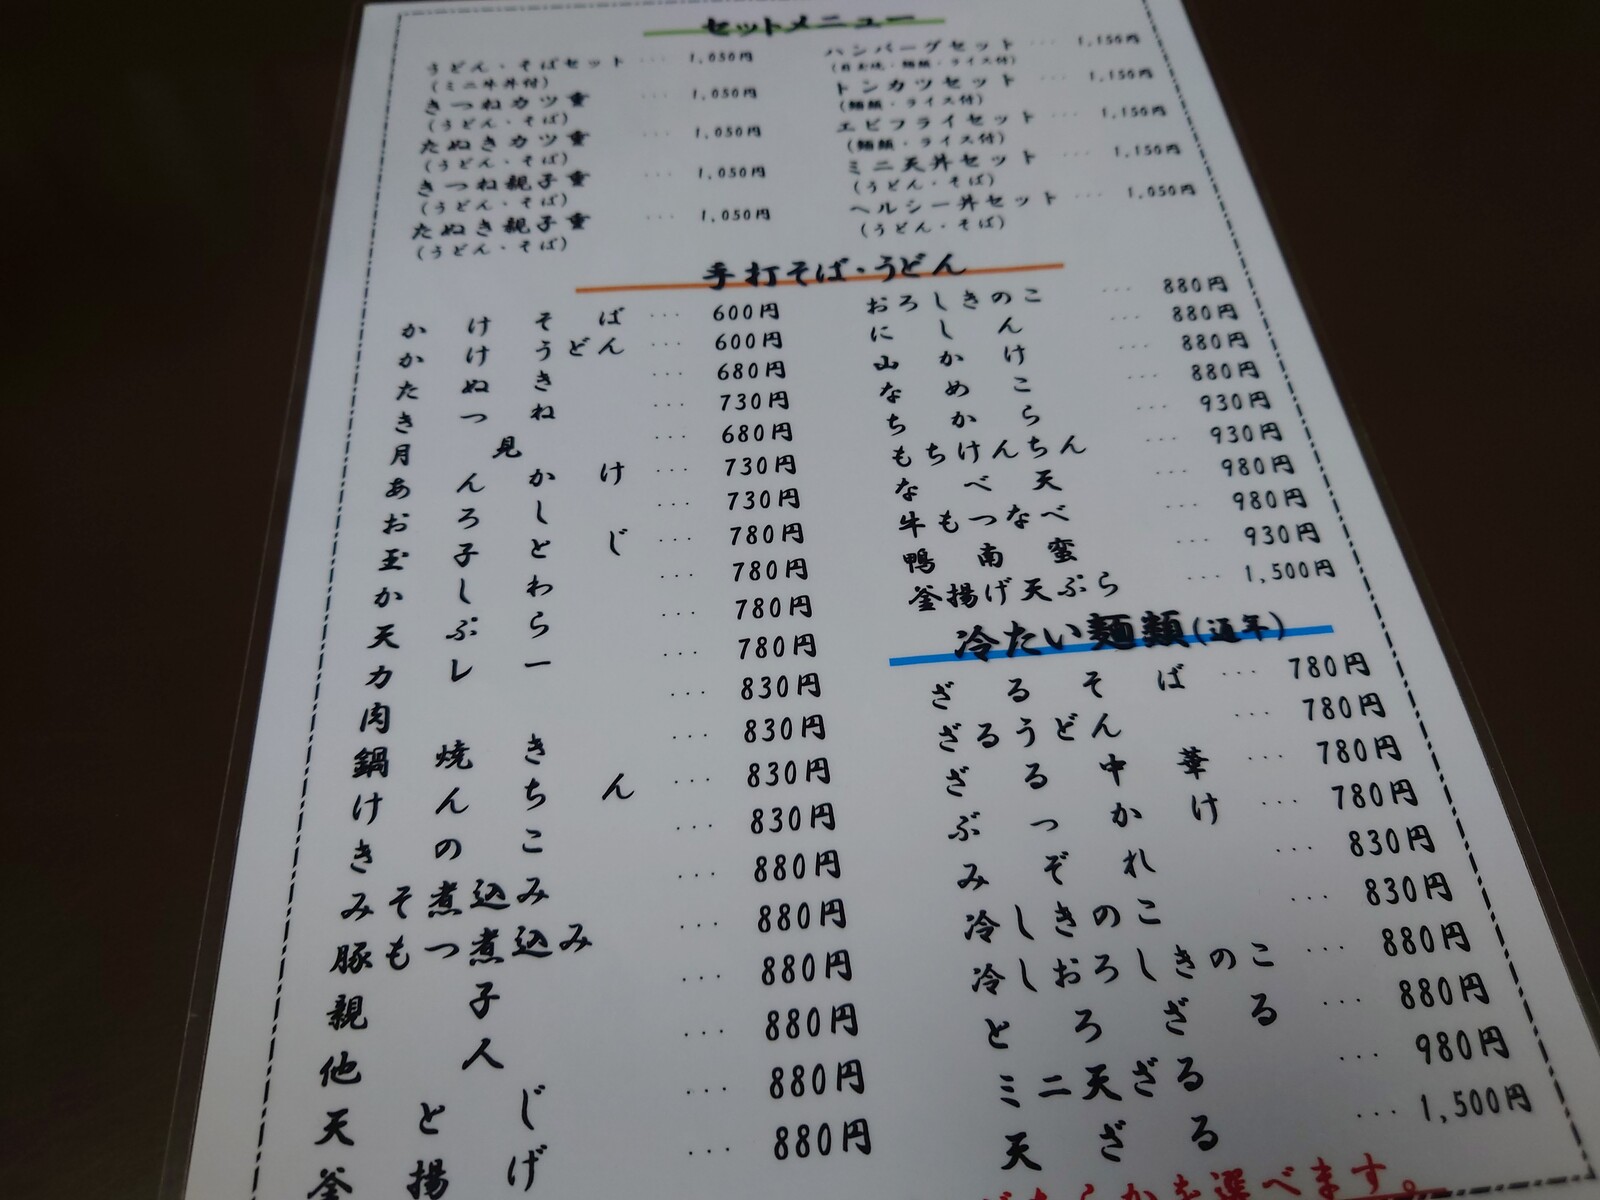 セットメニュー
うどん・そばセット … 1,050円
(ミニ牛丼付)
きつねカツ重 … 1,050円
(うどん・そば)
たぬきカツ重 … 1,050円
(うどん・そば)
きつね親子重 … 1,050円
(うどん・そば)
たぬき親子重 … 1,050円
(うどん・そば)
ハンバーグセット … 1,150円
麺類・ライス付)
トンカツセット … 1,150円
(麺類・ライス付)
エビフライセット … 1,150円
(麺類・ライス付)
ミニ天丼セット … 1,150円
(うどん・そば)
ヘルシー丼セット … 1,050円
(うどん・そば)
手打そば・うどん
かけそば … 600円
かけうどん … 600円
たぬき … 680円
きつね … 730円
月見 … 680円
あんかけ … 730円
おろし … 730円
玉子とじ … 780円
かしわ … 780円
天ぷら … 780円
カレー … 780円
肉 … 830円
鍋焼き … 830円
けんちん … 830円
きのこ … 830円
みそ煮込み … 880円
豚もつ煮込み … 880円
親子 … 880円
他人 … 880円
天とじ … 880円
釜揚げ … 880円
おろしきのこ … 880円
にしん … 880円
山かけ … 880円
なめこ … 880円
ちから … 930円
もちけんちん … 930円
なべ天 … 980円
牛もつなべ … 980円
鴨南蛮 … 930円
釜揚げ天ぷら … 1,500円
冷たい麺類(通年)
ざるそば … 780円
ざるうどん … 780円
ざる中華 … 780円
ぶっかけ … 780円
みぞれ … 830円
冷しきのこ … 830円
冷しおろしきのこ … 880円
とろざる … 880円
ミニ天ざる … 980円
天ざる … 1,500円
どちらかを選べます。